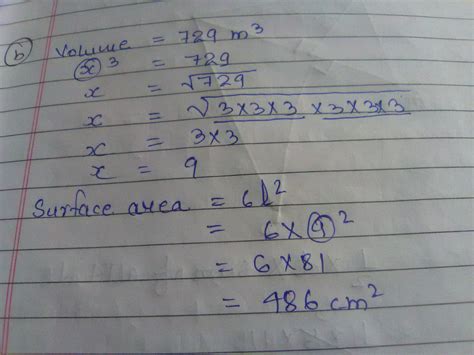 (b) Volume = 729 m³
x³ = 729
x = √729
x = √3×3×3 ×3×3×3
x = 3×3
x = 9
Surface area = 6l²
= 6×9²
= 6×81
= 486 cm²